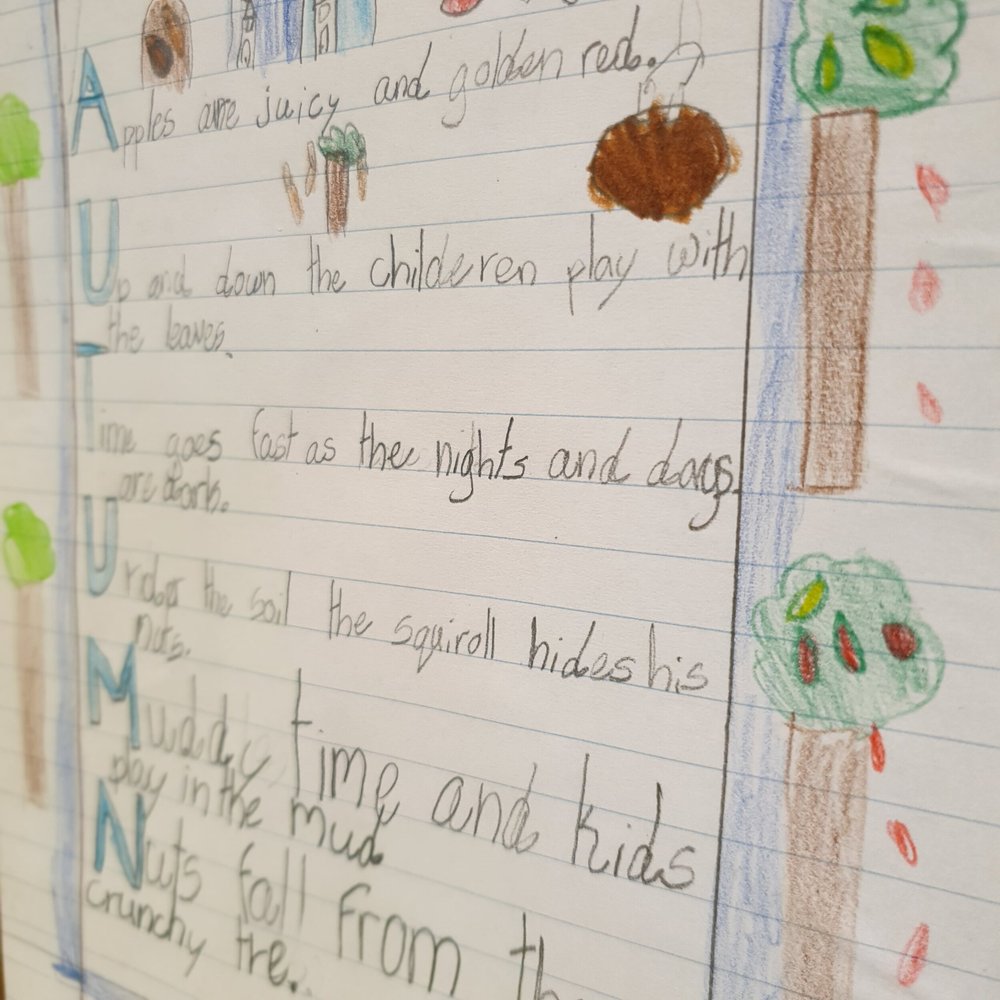 Apples are juicy and golden red.
Up and down the childeren play with
the leaves.
Time goes fast as the nights and days
are dark.
Under the soil the squiroll hides his
nuts.
Muddy time and kids
play in the mud
Nuts fall from
crunchy tre.